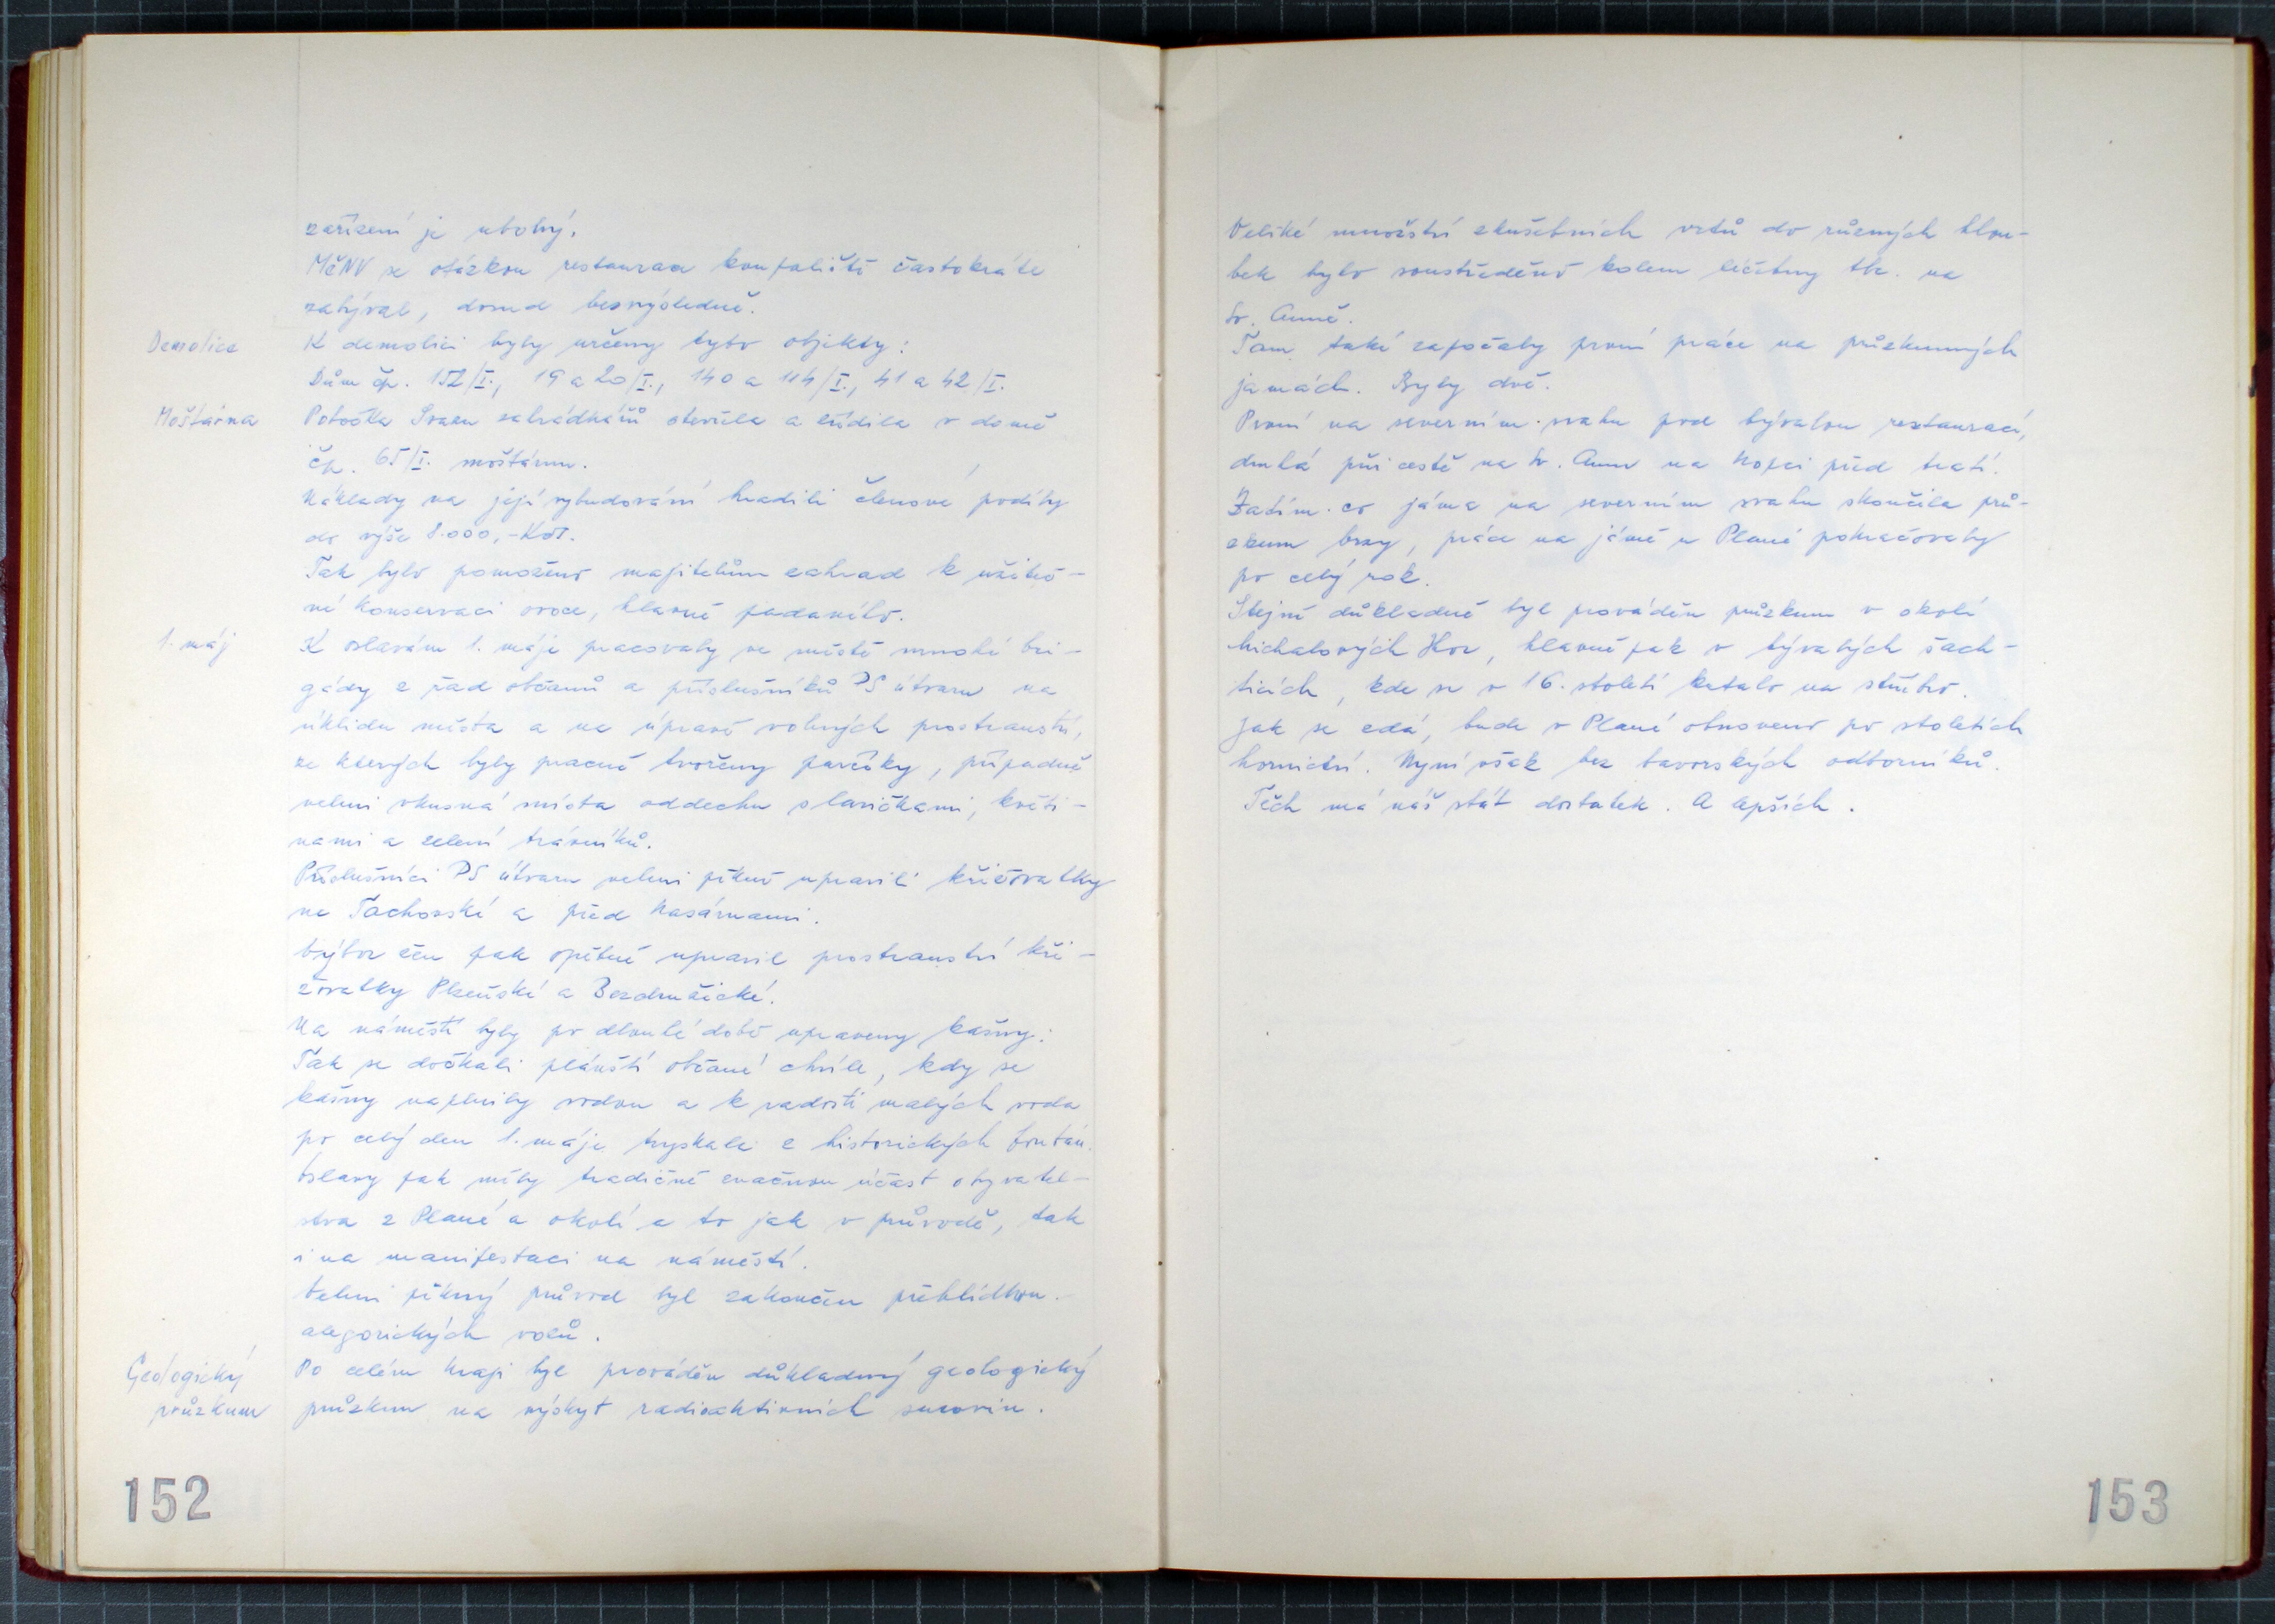 zařízení je ubohý.
MěNV se otázkou restaurace koupaliště častokráte
zabýval, dosud bezvýsledně.
Demolice
K demolici byly určeny tyto objekty:
Dům čp. 152/I., 19 a 20/I., 140 a 114/I., 41 a 42/I.
Moštárna
Pobočka Svazu zahrádkářů otevřela a zřídila v domě
čp. 65/I. moštárnu.
Náklady na její vybudování hradili členové podíly
do výše 8.000,- Kčs.
Tak bylo pomoženo majitelům zahrad k užiteč-
né konservaci ovoce, hlavně padaného.
1. máj
K oslavám 1. máje pracovaly ve městě mnohé bri-
gády z řad občanů a příslušníků PS útvaru na
úklidu města a na úpravě volných prostranství,
ze kterých byly pracně tvořeny parčíky, případně
velmi vkusná místa oddechu s lavičkami, květi-
nami a zelení trávníků.
Příslušníci PS útvaru velmi pěkně upravili křižovatky
na Tachovské a před kasárnami.
Výbor žen pak opětně upravil prostranství kři-
žovatky Plzeňské a Bezdružické.
Na náměstí byly po dlouhé době upraveny kašny.
Tak se dočkali plánští občané chvíle, kdy se
kašny naplnily vodou a k radosti malých voda
po celý den 1. máje tryskala z historických fontán.
Oslavy pak měly tradičně značnou účast obyvatel-
stva z Plané a okolí a to jak v průvodě, tak
i na manifestaci na náměstí.
Velmi pěkný průvod byl zakončen přehlídkou
alegorických vozů.
Geologický
průzkum
Po celém kraji byl prováděn důkladný geologický
průzkum na výskyt radioaktivních surovin.
152
Veliké množství zkušebních vrtů do různých hlou-
bek bylo soustředěno kolem léčebny tbc. na
Sv. Anně.
Tam také započaly první práce na průzkumných
jamách. Byly dvě.
První na severním svahu pod bývalou restaurací,
druhá při cestě na Sv. Annu na kopci před tratí.
Zatím co jáma na severním svahu skončila prů-
zkum brzy, práce na jámě u Plané pokračovaly
po celý rok.
Stejně důkladně byl prováděn průzkum v okolí
Michalových Hor, hlavně pak v bývalých šach-
ticích, kde se v 16. století kutalo na stříbro.
Jak se zdá, bude v Plané obnoveno po stoletích
hornictví. Nyní však bez bavorských odborníků.
Těch má náš stát dostatek. A lepších.
153